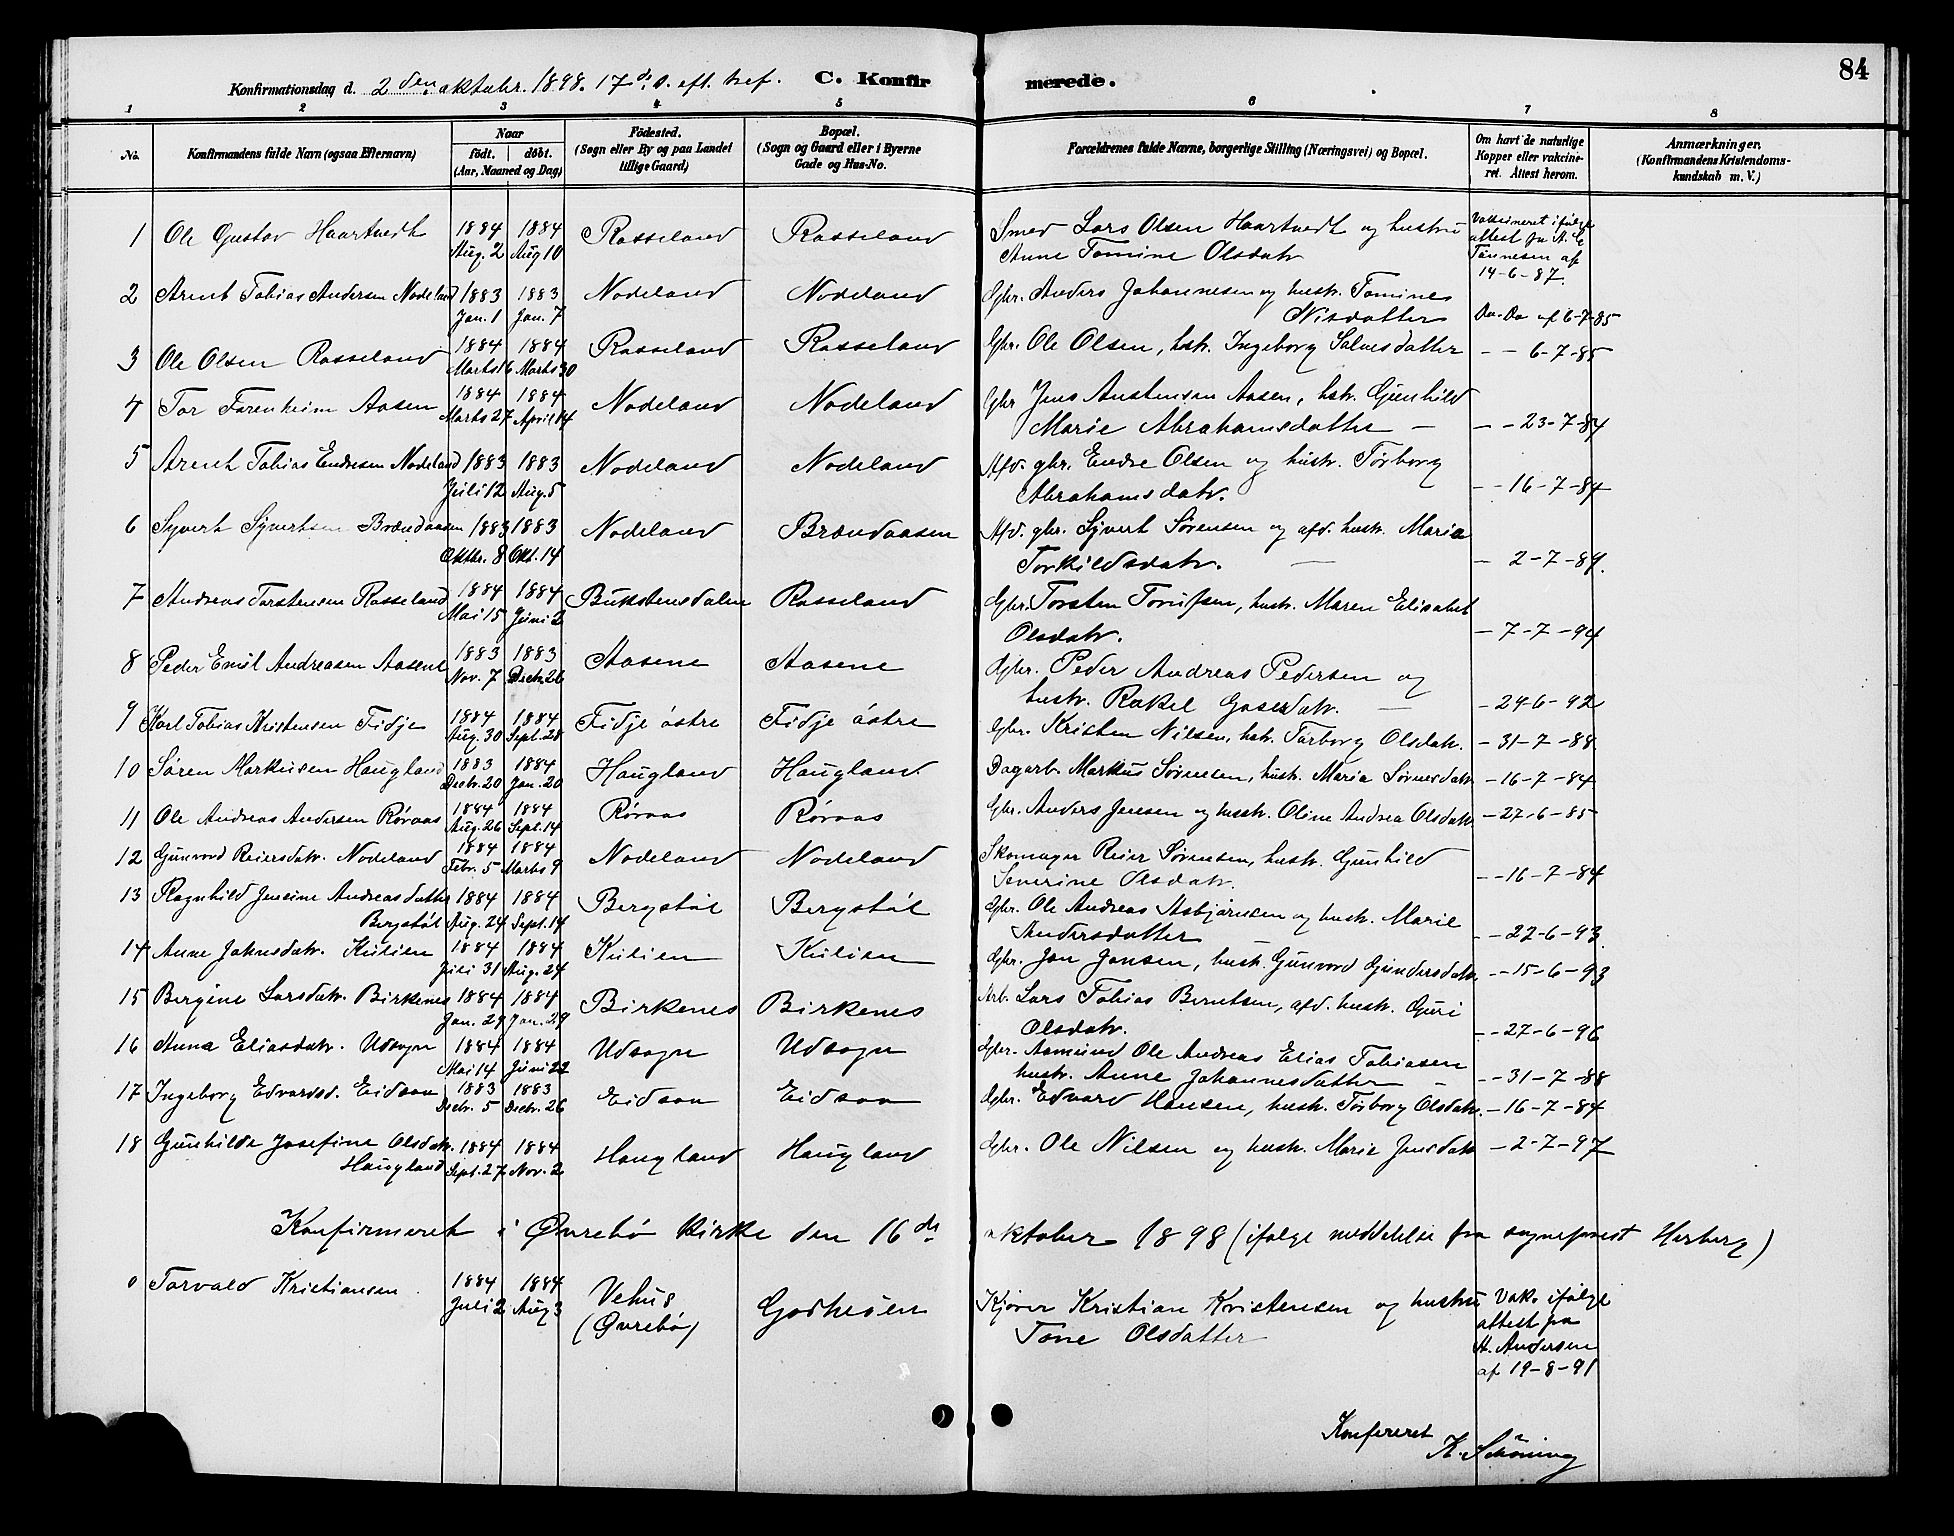 84
Konfirmationsdag d. 2den oktobr. 1898. 17de s. eft. tref. C. Konfirmerede.
1 2 3 4 5 6 7 8
No. Konfirmandens fulde Navn (ogsaa Efternavn) Naar födt. döbt. (Aar, Maaned og Dag) Födested. (Sogn eller By og paa Landet tillige Gaard) Bopæl. (Sogn og Gaard eller i Byerne Gade og Hus-No. Forældrenes fulde Navne, borgerlige Stilling (Næringsvei) og Bopæl. Om havt de naturlige Kopper eller vakcineret. Attest herom. Anmærkninger. (Konfirmandens Kristendomskundskab m. V.)
1 Ole Gustav Haartvedt 1884 Aug. 2 1884 Aug 10 Rosseland Rosseland Smed Lars Olsen Haartvedt og hustru Anne Tomine Olsdatr Vaksineret ifølge attest fra A. E Tønnesen af 14-6-87.
2 Arent Tobias Andersen Nodeland 1883 Jan. 1 1883 Jan. 7 Nodeland Nodeland Gbr. Anders Johannesen og hustr. Tomine Nilsdatter Do. Do af 6-7-85
3 Ole Olsen Rosseland 1884 Marts 16 1884 Marts 30 Rosseland Rosseland Gbr. Ole Olsen, hstr. Ingeborg Salvesdatter - - 6-7-85
4 Tor Forenheim Aasen 1884 Marts 27 1884 April 14 Nodeland Nodeland Gbr Jens Austensen Aasen, hstr. Gunhild Marie Abrahamsdatter - - - 23-7-84
5 Arent Tobias Endresen Nodeland 1883 Juli 12 1883 Aug. 5 Nodeland Nodeland Afd. gbr. Endre Olsen og hustr. Torborg Abrahamsdatr. - - 16-7-84
6 Syvert Syvertsen Brændaasen 1883 Oktbr. 8 1883 Okt. 14 Nodeland Brændaasen Afd. gbr. Syvert Sørensen og afd. hustr. Maria Torkildsdatr. - - 2-7-89.
7 Andreas Torstensen Rosseland 1884 Mai 15 1884 Juni 2 Bukstensdalen Rosseland Gbr. Torsten Torufsen, hustr. Maren Elisabet Olsdatr. - 7-7-94
8 Peder Emil Andreasen Aasene 1883 Nov. 7 1883 Decbr. 26 Aasene Aasene Gbr. Peder Andreas Pedersen og hustr. Rakel Gosesdatr. - - 24-6-92
9 Karl Tobias Kristensen Fidje 1884 Aug. 30 1884 Sept. 28 Fidje östre Fidje östre Gbr. Kristen Nilsen, hstr. Torborg Olsdatr. - 31-7-88
10 Søren Markusen Haugland 1883 Decbr. 20 1884 Jan. 20 Haugland Haugland. Dagarb. Markus Sørensen, hustr. Maria Sørnesdatr. - 16-7-84
11 Ole Andreas Andersen Røraas 1884 Aug. 26 1884 Sept. 14 Røraas Røraas Gbr. Anders Jensen og hustr. Oline Andrea Olsdatr. - 27-6-85
12 Gunvord Reiersdatr. Nodeland 1884 Febr. 5 1884 Marts 9 Nodeland Nodeland Skomager Reier Sørensen, hustr. Gunhild Severine Olsdatr. - - 16-7-84
13 Ragnhild Jensine Andreasdatter Bergstøl 1884 Aug. 24 1884 Sept. 14 Bergstøl Bergstøl Gbr. Ole Andreas Asbjørnsen og hustr. Marie Andersdatter - - 22-6-93.
14 Anne Johnsdatr. Kulien 1884 Juli 31 1884 Aug. 24 Kulien Kulien Gbr. Jon Jonsen, hustr. Gunvord Gundersdatr. - - 15-6-93
15 Bergine Larsdatr. Birkenes 1884 Jan. 29 1884 Jan. 29 Birkenes Birkenes Arb. Lars Tobias Berntsen, afd. hustr. Guri Olsdatr. - - 27-6-96
16 Anna Eliasdatr. Udsogn 1884 Mai 14 1884 Juni 22 Udsogn Udsogn Gbr. Aamund Ole Andreas Elias Tobiasen hustr. Anne Johannesdatter - - - 31-7-88
17 Ingeborg Edvardsd. Eidsaa 1883 Decbr. 5 1883 Decbr. 26 Eidsaa Eidsaa Gbr. Edvard Hansen, hustr. Torborg Olsdatr. - 16-7-84
18 Gunhilde Josefine Olsdatr. Haugland 1884 Sept. 27 1884 Nov. 2 Haugland Haugland Gbr. Ole Nilsen og hustr. Marie Jensdatr - 2-7-97
Konfirmeret i Øvrebø kirke den 16de oktober 1898 (ifølge meddelelse fra sogneprest Herberg)
0 Torvald Kristiansen. 1884 Juli 2 1884 Aug 3 Vehus (Øvrebø) Godheien Kjører Kristian Kristensen og hustru Tone Olsdatter Vak. ifølge attest fra H. Andersen af 19-8-91
Konfereret
K. Schöning